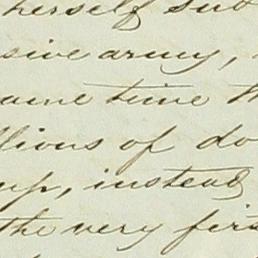 herself sub
sive army,
ame time th
llions of do
up, instead
the very firs